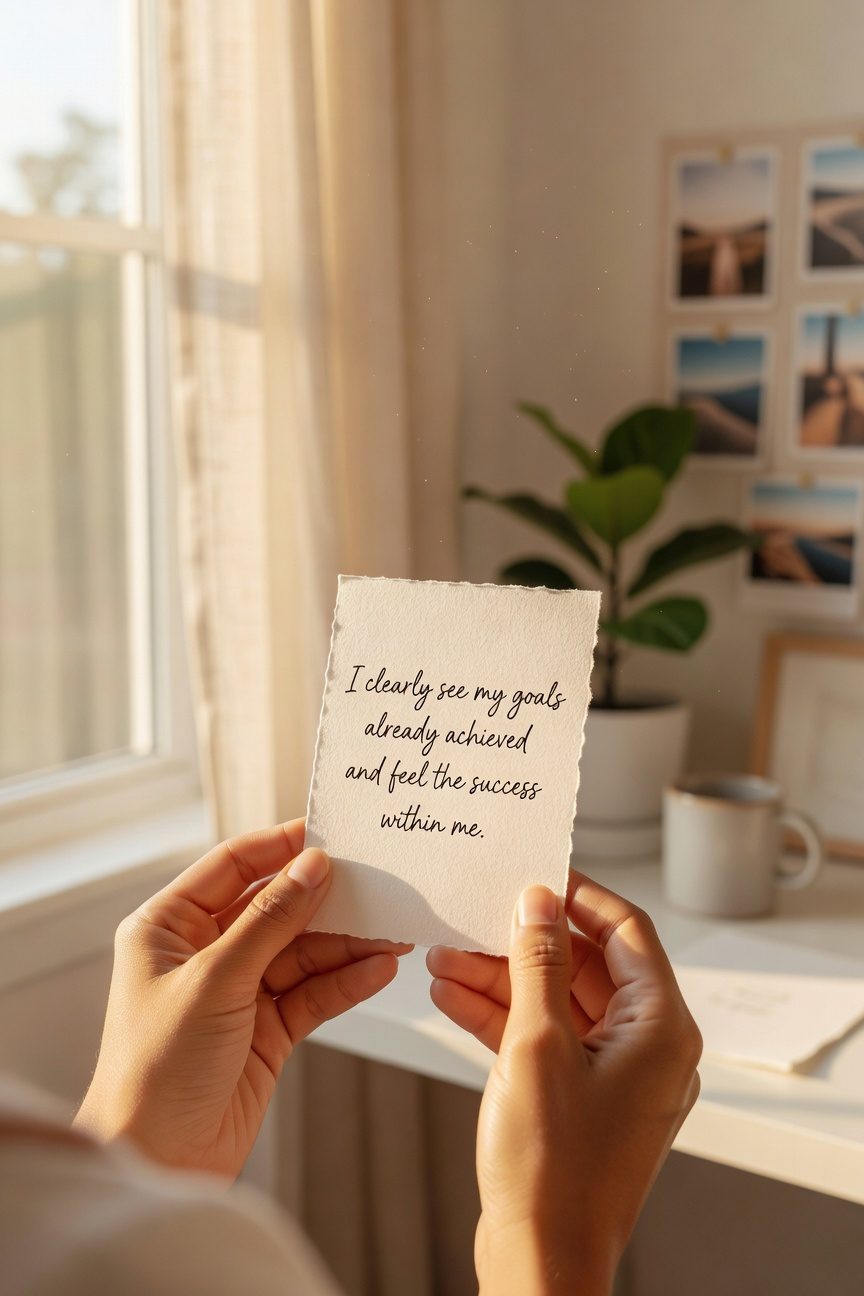 I clearly see my goals
already achieved
and feel the success
within me.